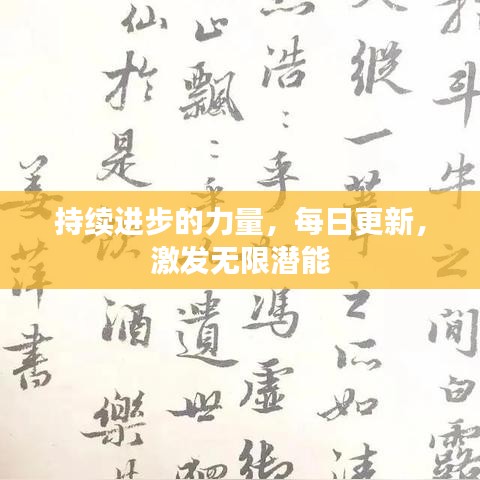 於斗牛之間白露
縱一葦之所如
浩〻乎馮虛御
止飄〻乎遺世
仙於是酒樂
姜萍書
持续进步的力量，每日更新，
激发无限潜能